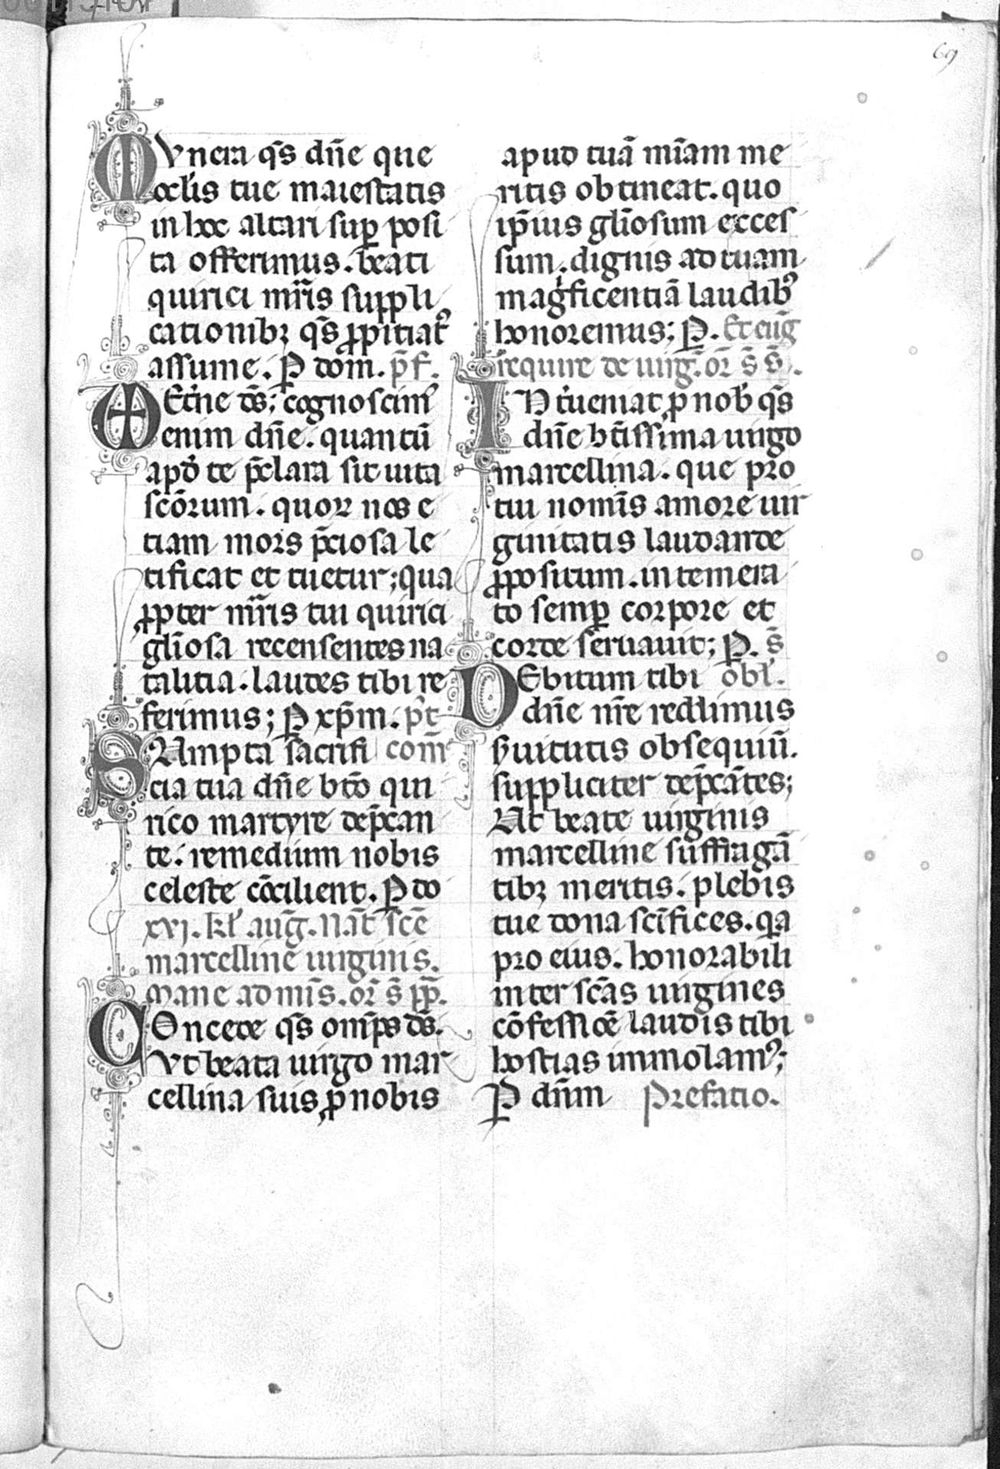 69
Mvnera q̄s dn̄e que
oc̄lis tue maiestatis
in hoc altari sup̱ posi
ta offerimus. beati
quirici mr̄is suppli
cationibꝫ q̄s ꝓpitiat᷑
assume. P dom. p̄f.
Et̄ne d̄s; cognoscim᷒
enim dn̄e. quantū
apd̓ te p̄clara sit uita
sc̄orum. quoꝝ nos e
tiam mors p̄ciosa le
tificat et tuetur; qua
ꝓpter mr̄is tui quirici
glīosa recensentes na
talitia. laudes tibi re
ferimus; P xp̄m. p̄t
SAmpta sacrifi com̄
cia tua dn̄e btō qui
rico martyre dep̄can
te. remedium nobis
celeste cōcilient. P do
xvj. kl̓ auḡ. Nat̄ sc̄e
marcelline uirginis.
Mane ad mis̄. or̄ s̄ pp̄.
COncede q̄s omp̄s d̄s.
Vt beata uirgo mar
cellina suis ꝓ nobis
apud tuā mīam me
ritis obtineat. quo
ip̄ius glīosum exces
sum. dignis ad tuam
mag̓ficentiā laudib᷒
honoremus; P. Et euḡ
require de uirg̅. or̄ s̄ s̄.
INt̓ueniat ꝓ nob̓ q̄s
dn̄e bt̄issima uirgo
marcellina. que pro
tui nomīs amore uir
ginitatis laudande
ꝓpositum. in temera
to semꝑ corpore et
corde seruauit; P. s̄
DEbitum tibi obl̓.
dn̄e nr̄e reddimus
ẜuitutis obsequiū.
suppliciter dep̄cātes;
Vt beate uirginis
marcelline suffragā
tibꝫ meritis. plebis
tue dona scīfices. q̄a
pro eius. honorabili
inter sc̄as uirgines
cōfessiōe laudis tibi
hostias immolam᷒;
P dn̄m Prefatio.